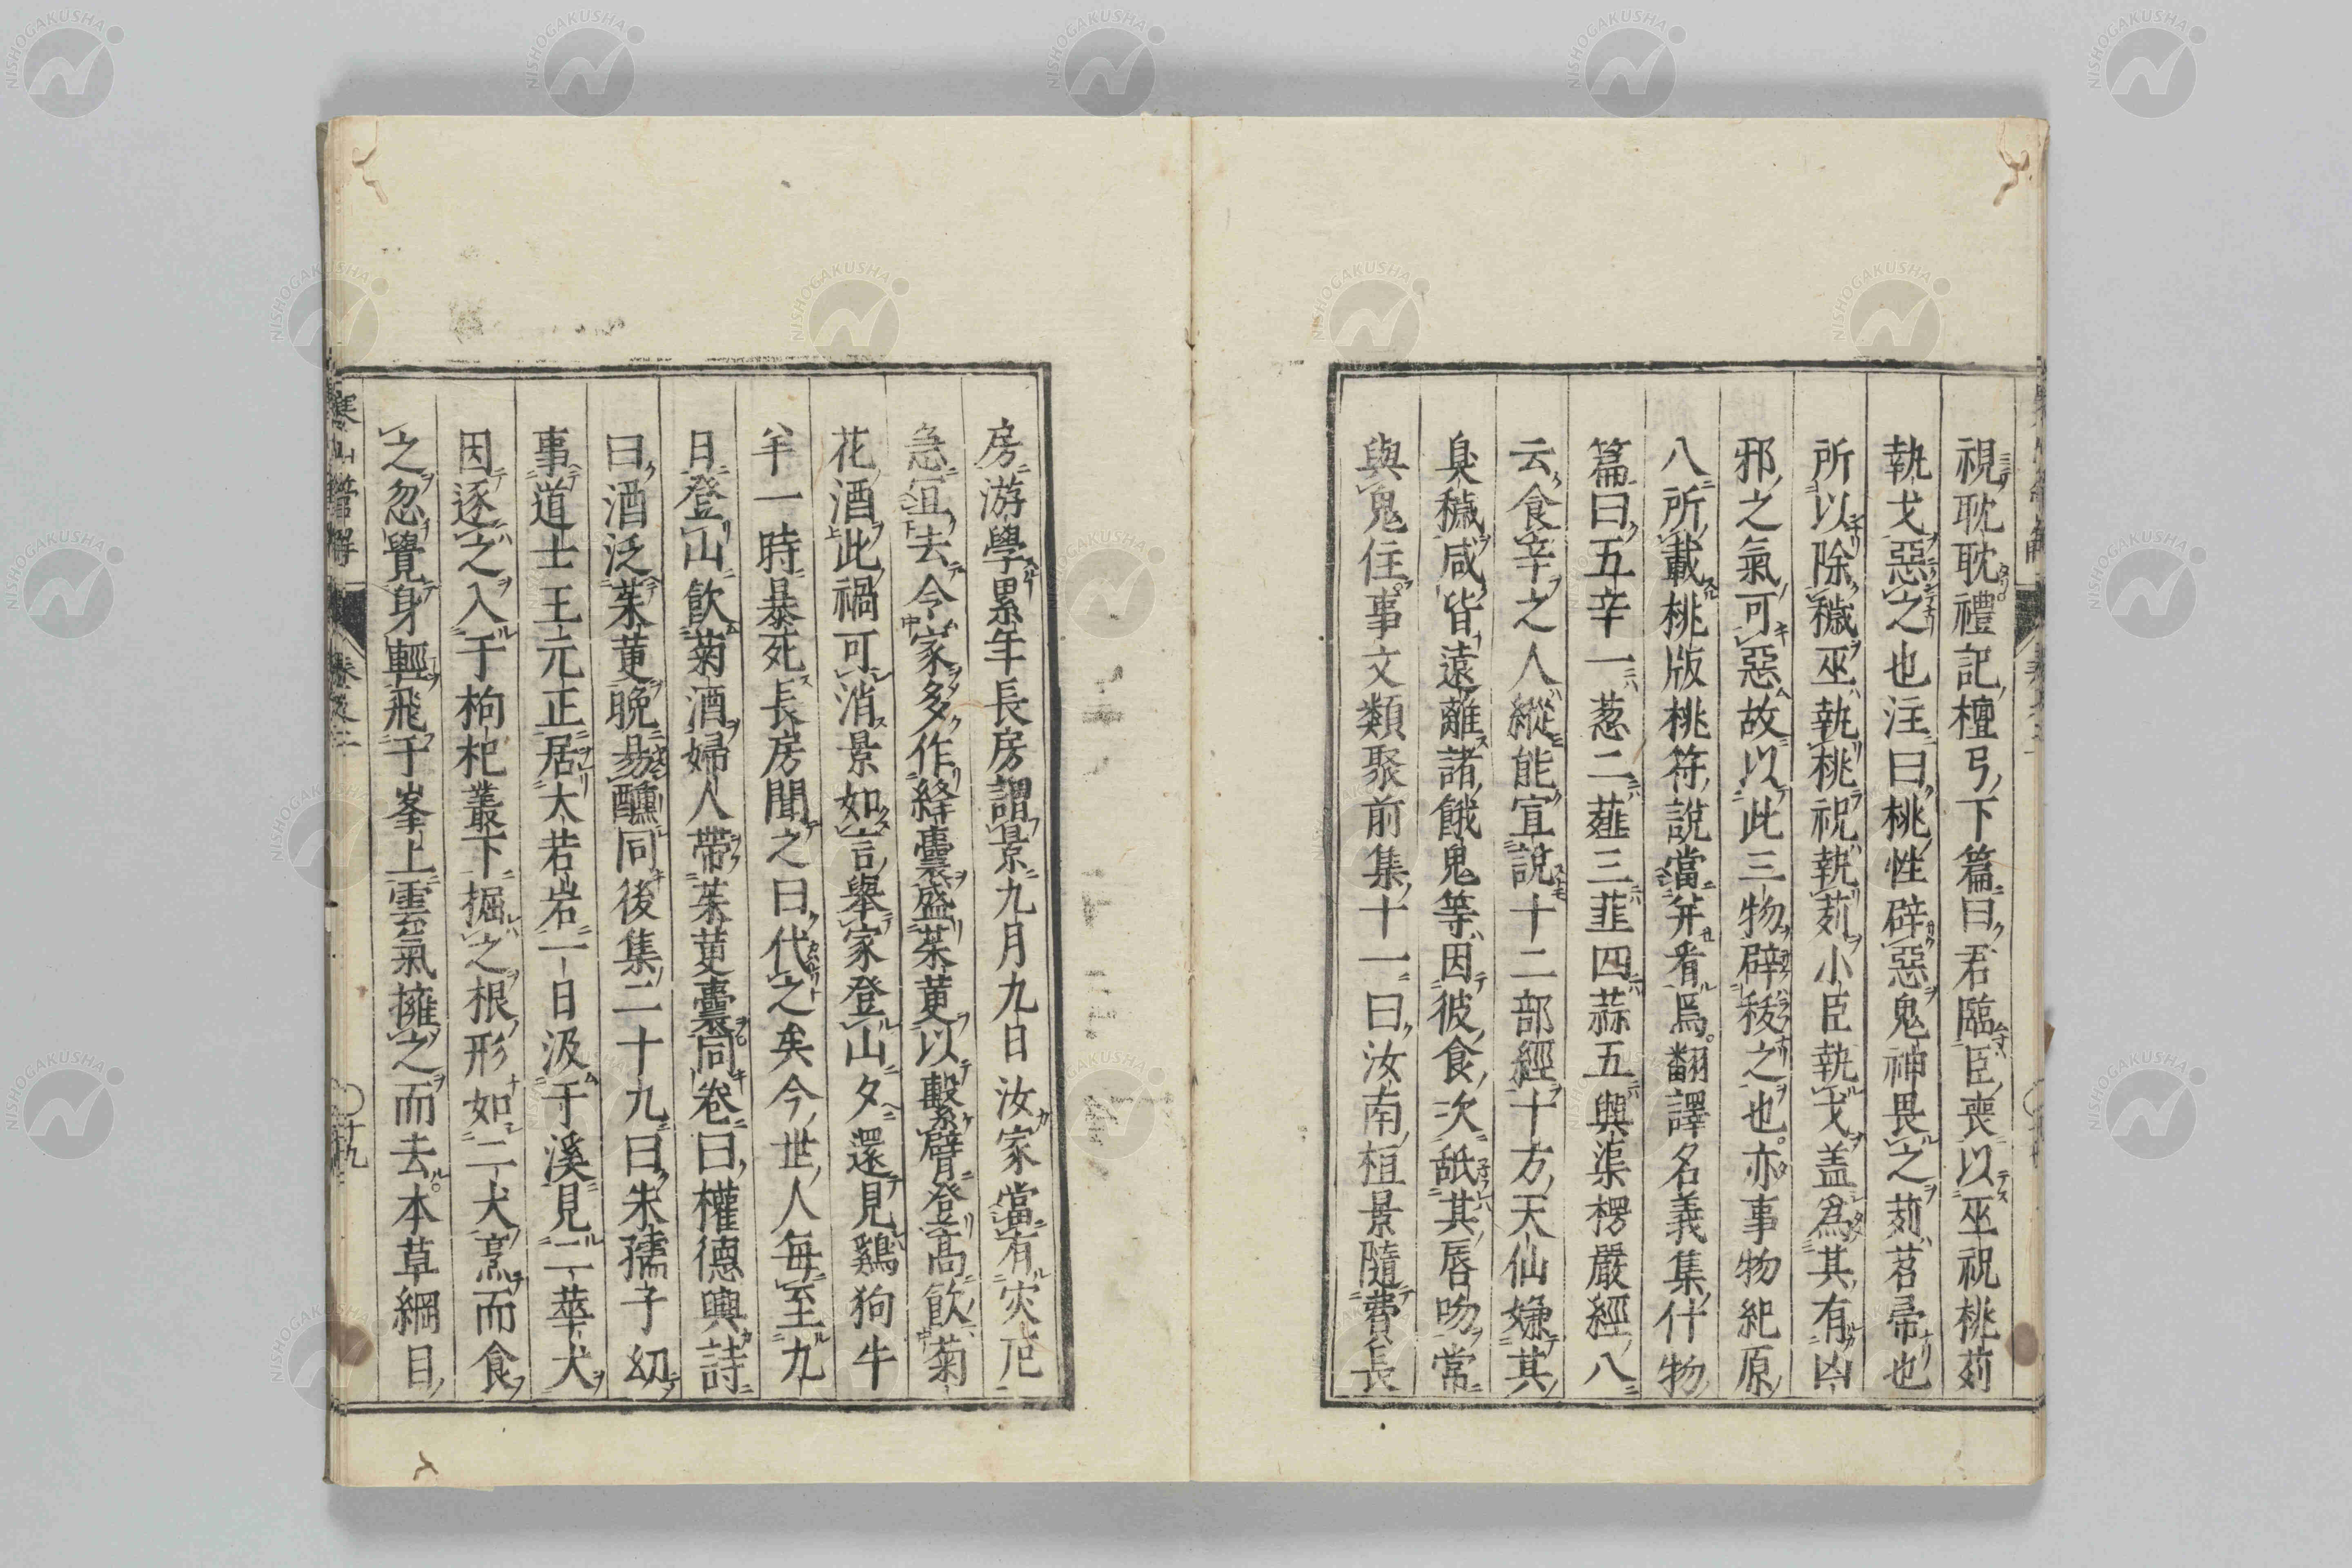 視耽耽禮記檀弓下篇曰君臨臣喪以巫祝桃茢
執戈惡之也注曰桃性辟惡鬼神畏之茢苕帚也
所以除穢巫執桃祝執茢小臣執戈盖為其有凶
邪之氣可惡故以此三物辟祓之也亦事物紀原
八所載桃版桃符說當并看焉翻譯名義集什物
篇曰五辛一葱二薤三韮四蒜五與渠楞嚴經八
云食辛之人縱能宣說十二部經十方天仙嫌其
臭穢咸皆遠離諸餓鬼等因彼食次舐其唇吻常
與鬼住事文類聚前集十一曰汝南桓景隨費長
房游學累年長房謂景九月九日汝家當有灾厄
急宜去令家多作絳囊盛茱萸以繫臂登高飲菊
花酒此禍可消景如言舉家登山夕還見鷄狗牛
羊一時暴死長房聞之曰代之矣今世人每至九
日登山飲菊酒婦人帶茱萸囊同卷曰權德輿詩
曰酒泛茱萸晚易醺同後集二十九曰朱孺子幼
事道士王元正居大若岩一日汲于溪見二華犬
因逐之入于枸杞叢下掘之根形如二犬烹而食
之忽覺身輕飛于峯上雲氣擁之而去本草綱目
寒山
十九
NISHOGAKUSHA